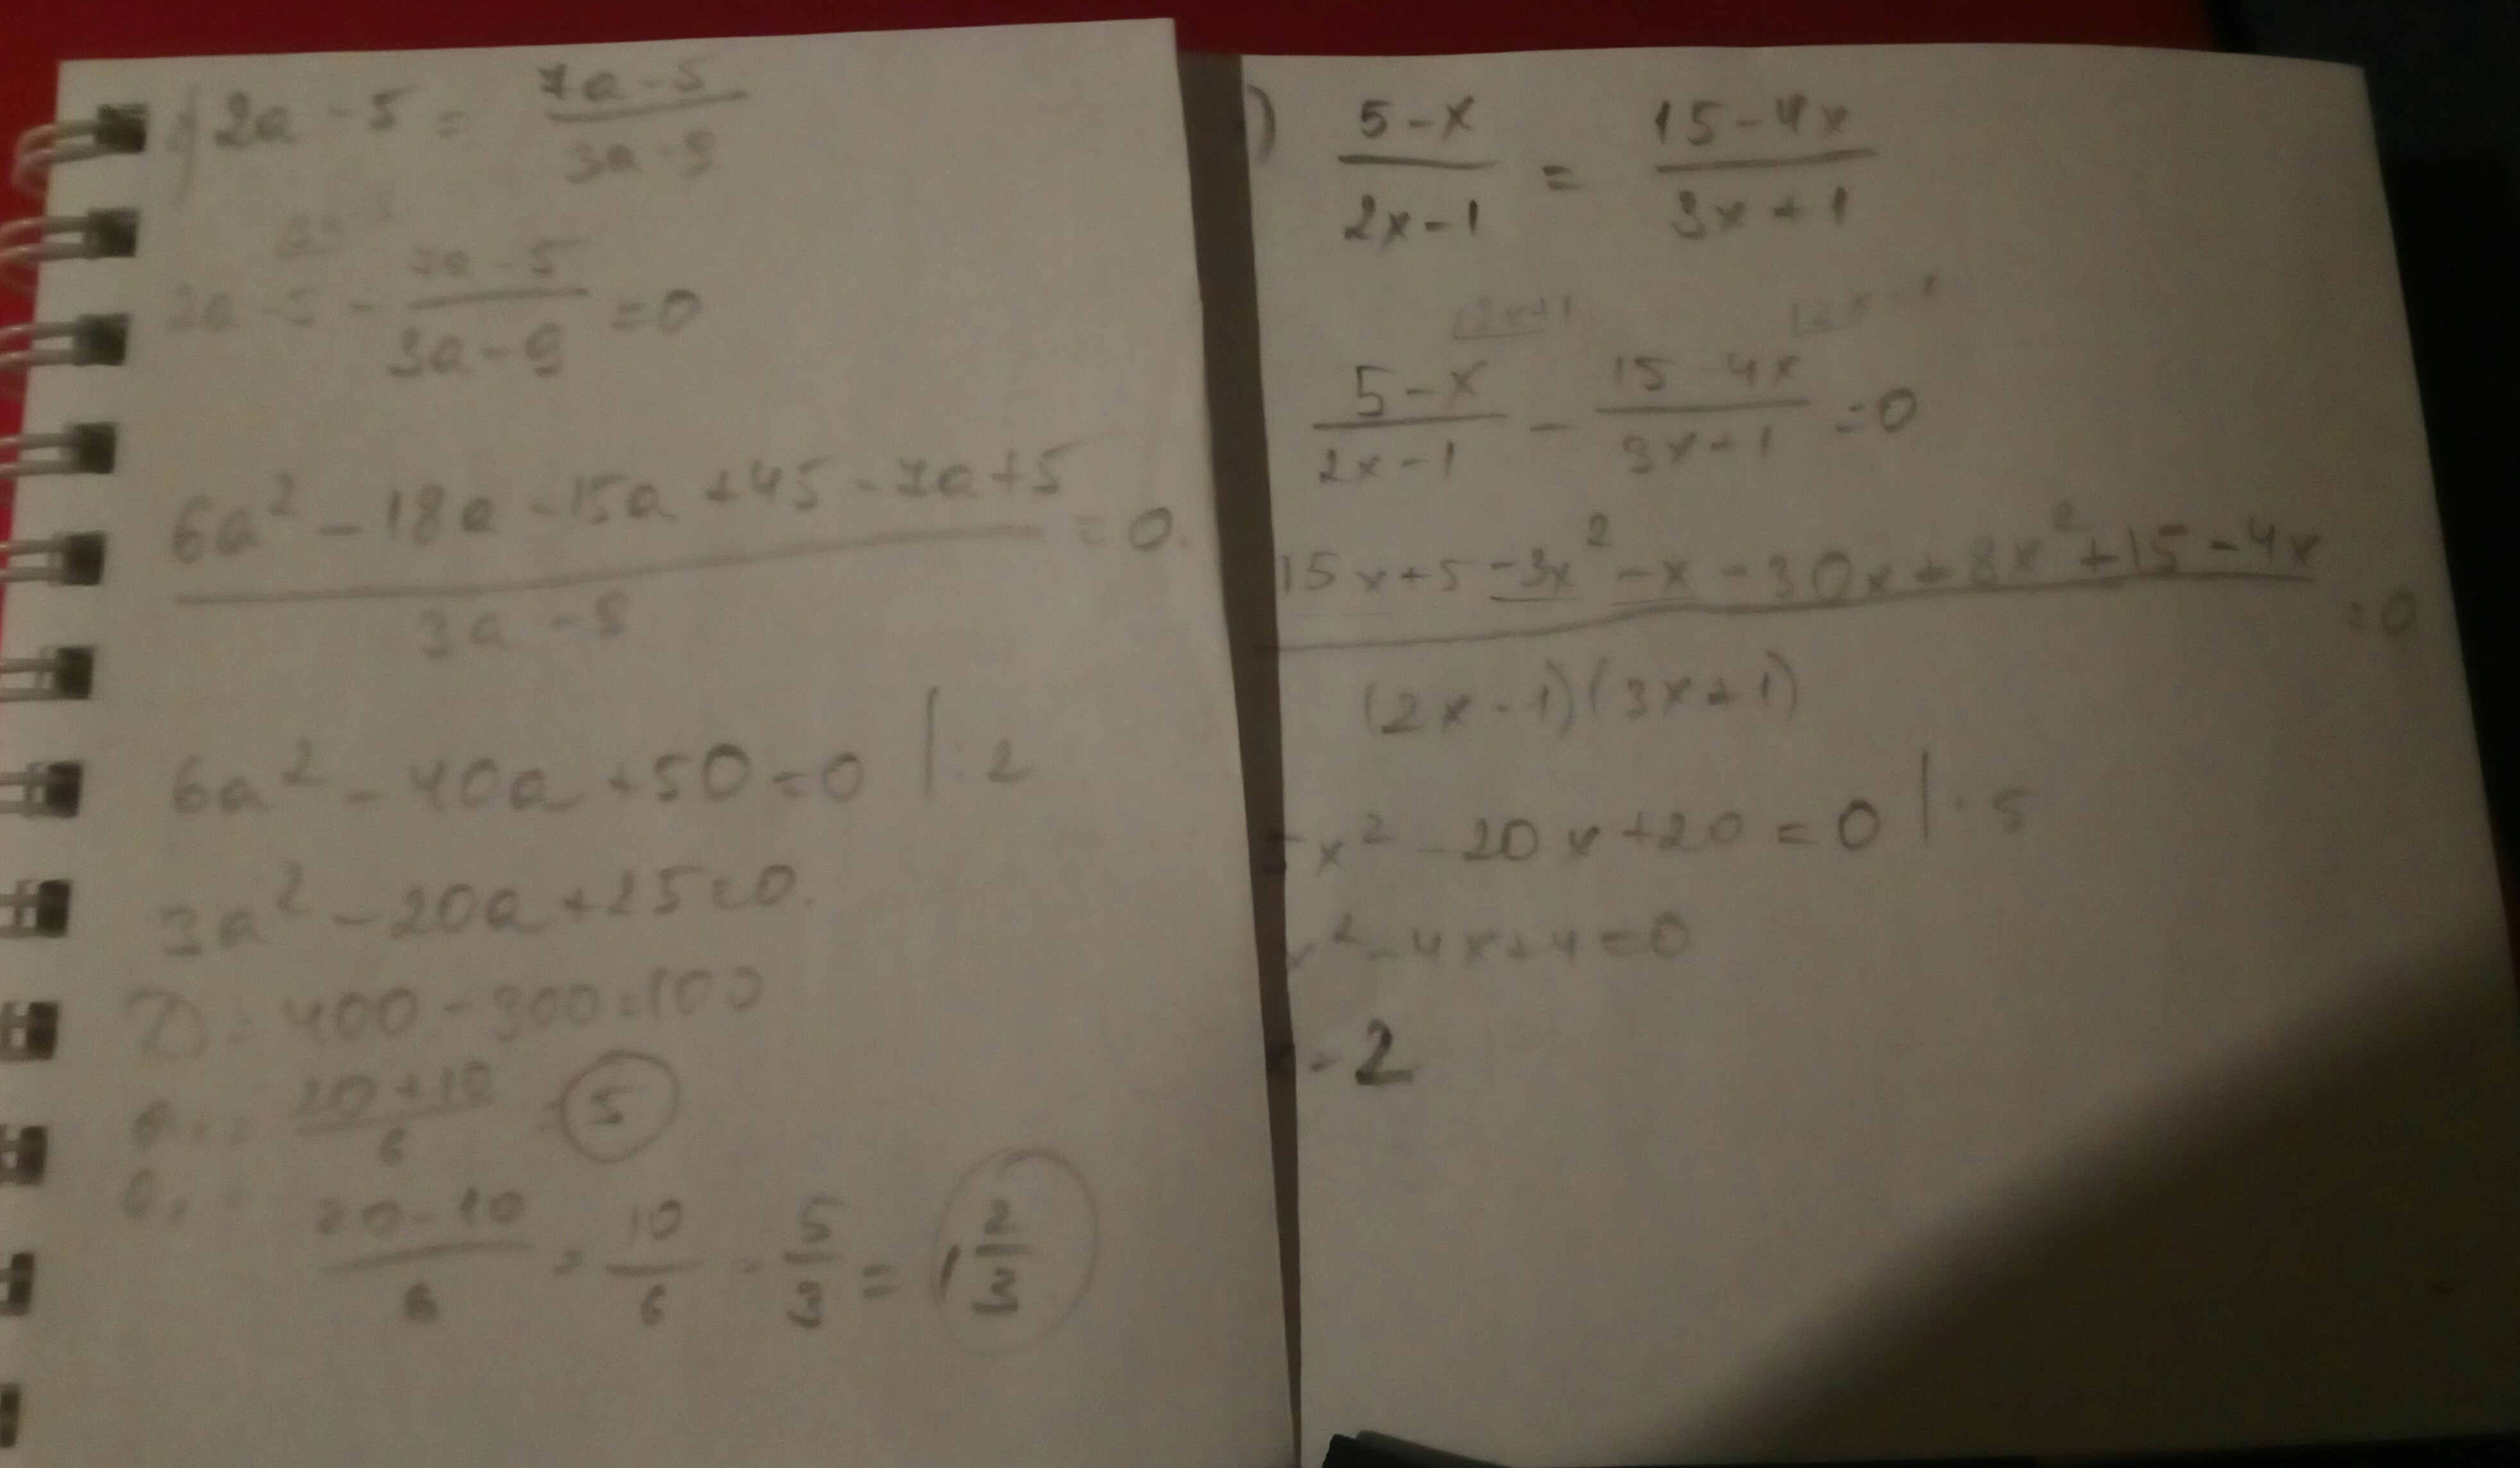 2a - 5 = \frac{7a - 5}{3a - 9}
2a - 5 - \frac{7a - 5}{3a - 9} = 0
\frac{6a² - 18a - 15a + 45 - 7a + 5}{3a - 9} = 0.
6a² - 40a + 50 = 0 | : 2
3a² - 20a + 25 = 0.
D = 400 - 300 = 100
a₁ = \frac{20 + 10}{6} = 5
a₂ = \frac{20 - 10}{6} = \frac{10}{6} = \frac{5}{3} = 1 \frac{2}{3}
) \frac{5 - x}{2x - 1} = \frac{15 - 4x}{3x + 1}
(3x+1 (2x-1
\frac{5 - x}{2x - 1} - \frac{15 - 4x}{3x + 1} = 0
\frac{15x + 5 - 3x² - x - 30x + 8x² + 15 - 4x}{(2x - 1)(3x + 1)} = 0
5x² - 20x + 20 = 0 | : 5
x² - 4x + 4 = 0
x = 2